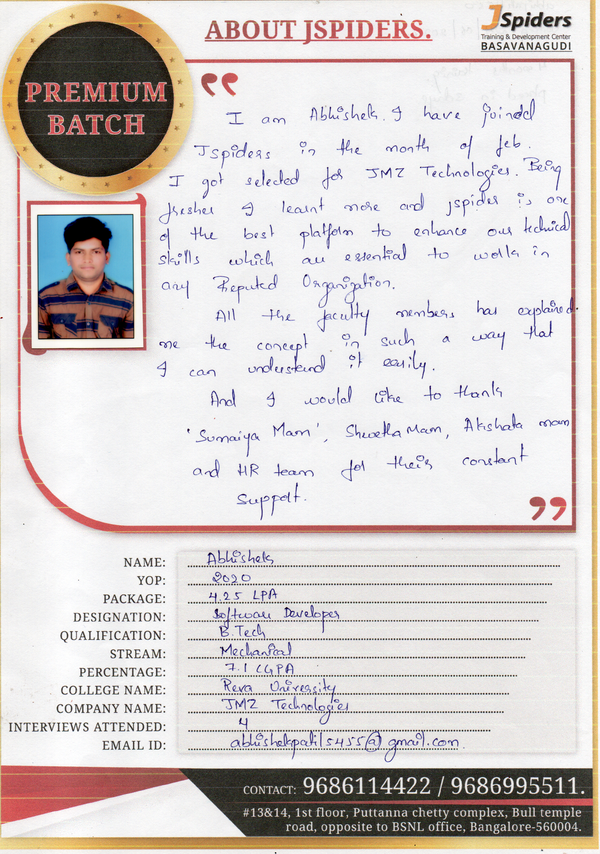 ABOUT JSPIDERS.
JSpiders
Training & Development Center
BASAVANAGUDI
PREMIUM
BATCH
I am Abhishek. I have joined
Jspiders in the month of feb.
I got selected for JMZ Technologies. Being
fresher I learnt more and jspider is one
of the best platform to enhance our technical
skills which are essential to work in
any Reputed Organization.
All the faculty members has explained
me the concept in such a way that
I can understand it easily.
And I would like to thank
'Sumaiya Mam', Shwetha Mam, Akshata mam
and HR team for their constant
Support.
NAME: Abhishek
YOP: 2020
PACKAGE: 4.25 LPA
DESIGNATION: Software Developer
QUALIFICATION: B.Tech
STREAM: Mechanical
PERCENTAGE: 7.1 CGPA
COLLEGE NAME: Reva University
COMPANY NAME: JMZ Technologies
INTERVIEWS ATTENDED: 4
EMAIL ID: abhishekpatil5455@gmail.com
CONTACT: 9686114422 / 9686995511.
#13&14, 1st floor, Puttanna chetty complex, Bull temple
road, opposite to BSNL office, Bangalore-560004.